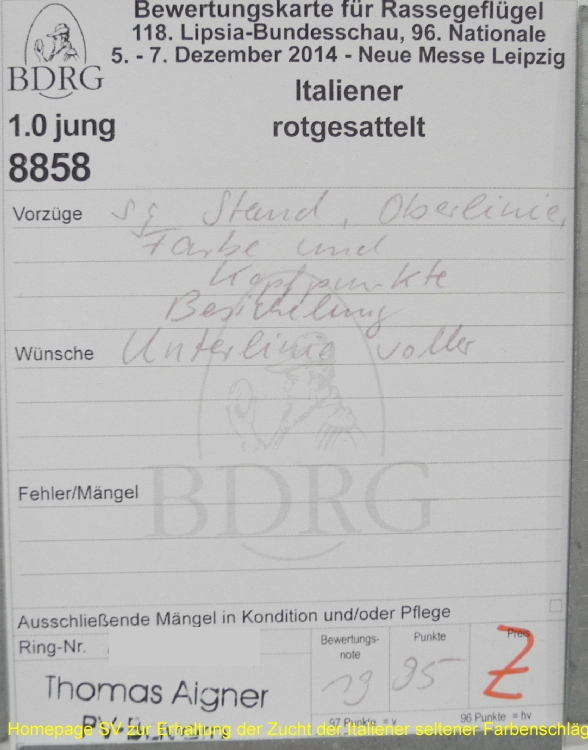 Bewertungskarte für Rassegeflügel
118. Lipsia-Bundesschau, 96. Nationale
5. - 7. Dezember 2014 - Neue Messe Leipzig
BDRG
Italiener
1.0 jung
rotgesattelt
8858
Vorzüge sg Stand, Oberlinie,
Farbe und
Kopfpunkte
Besichelung
Wünsche Unterlinie voller
BDRG
Fehler/Mängel
Ausschließende Mängel in Kondition und/oder Pflege
Ring-Nr.
Bewertungs-
note
Punkte
Preis
95
Z
Thomas Aigner
97 Punkte = v
96 Punkte = hv
Homepage SV zur Erhaltung der Zucht der Italiener seltener Farbenschläg